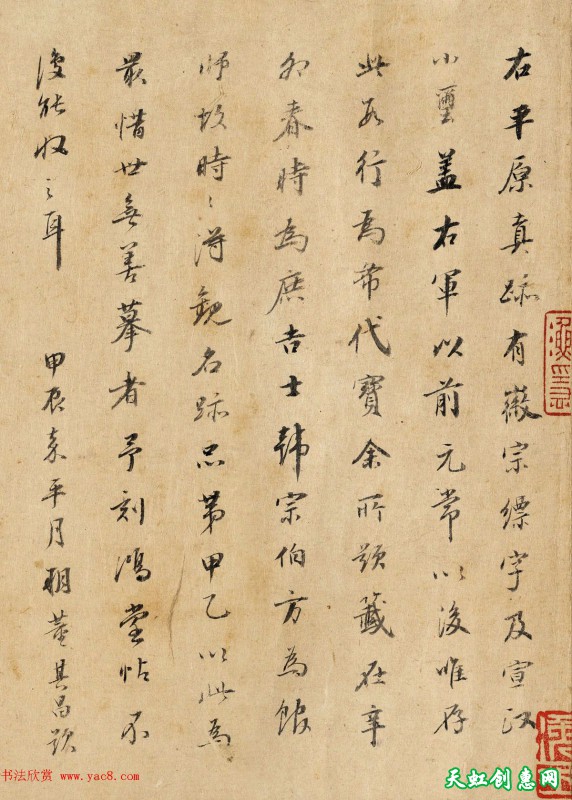 右平原真跡有徽宗縹字及宣和
小璽盖右軍以前元常以後唯存
此數行爲希代寶余所題籤在辛
卯春時爲庶吉士韓宗伯方爲館
師故時〻得觀名跡品第甲乙以此爲
最惜世無善摹者予刻鴻堂帖不
復能收之耳 甲辰嘉平月朔董其昌題
书法欣赏 www.yac8.com
天虹创惠网